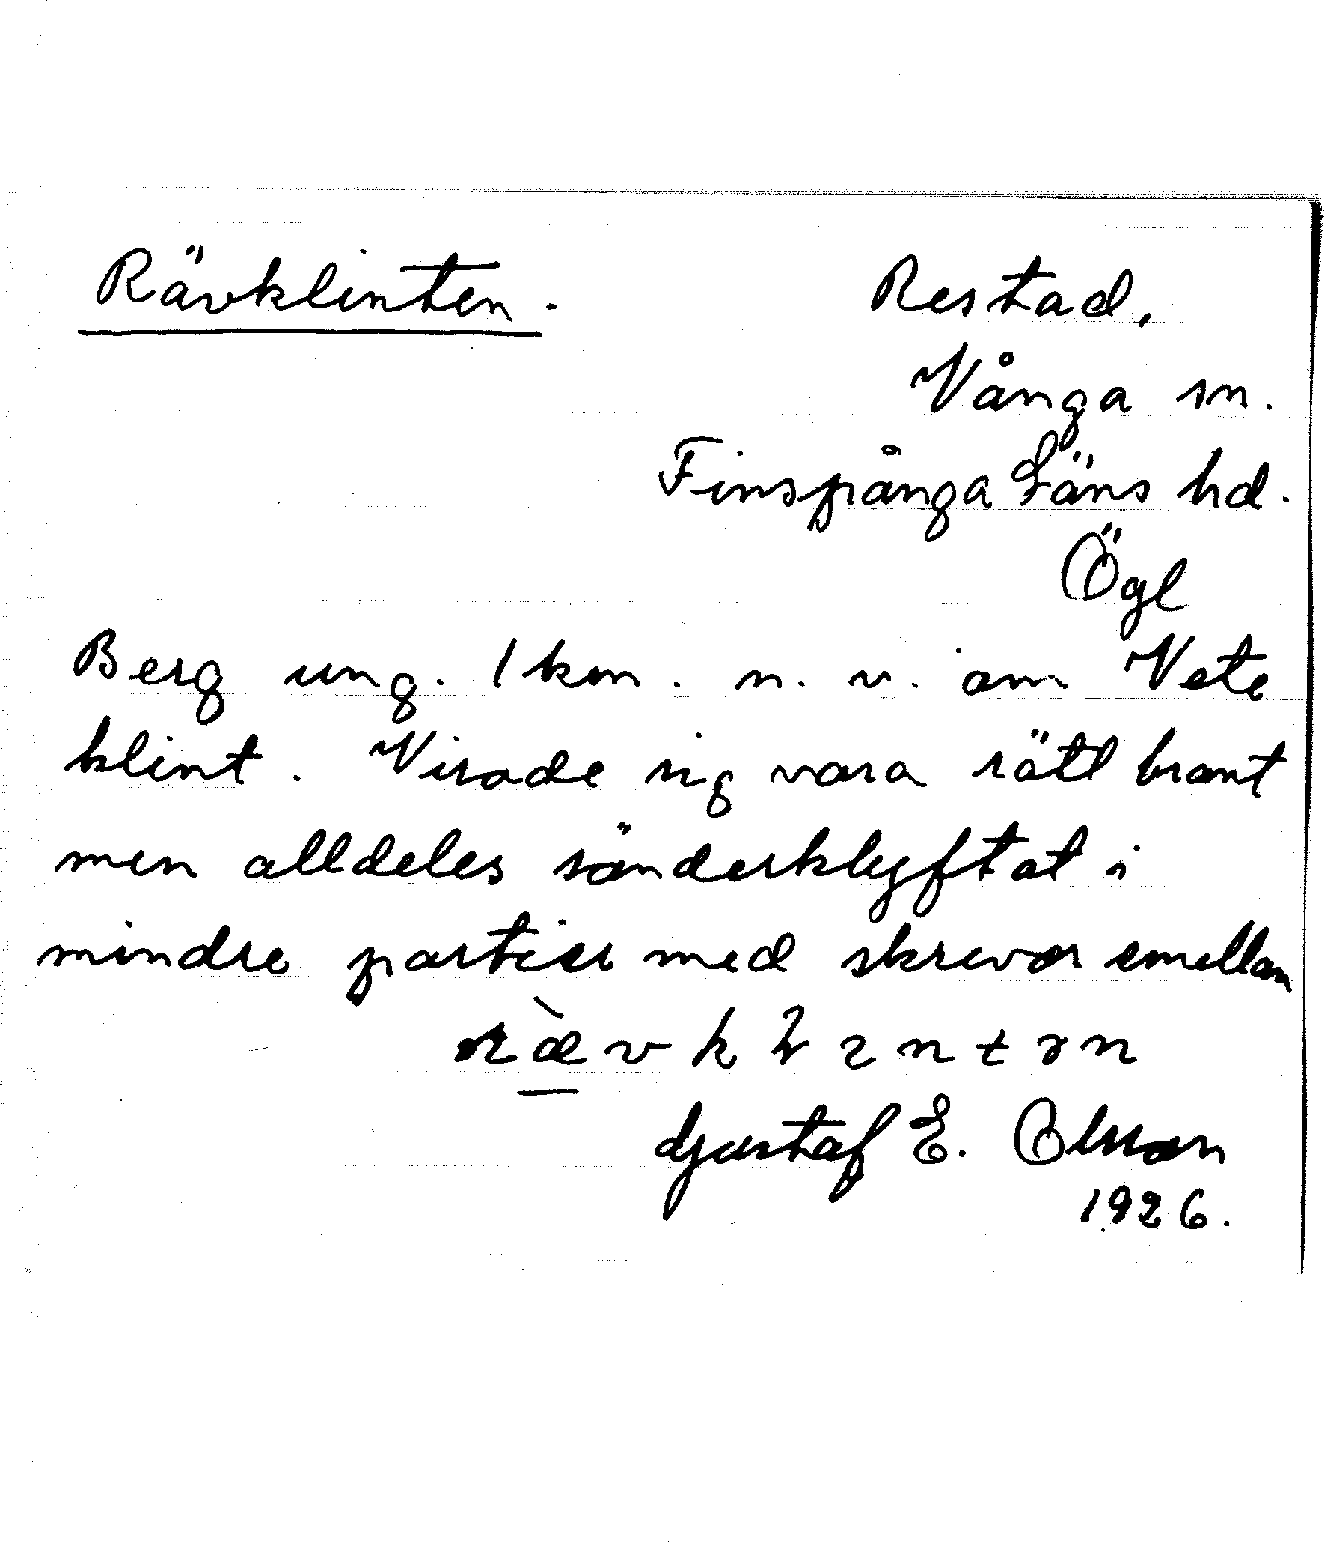 Rävklinten. Restad.
Vånga sn.
Finspånga Läns hd.
Ögl
Berg ung. 1 km. n. v. om Vete
klint. Visade sig vara rätt brant
men alldeles sönderklyftat i
mindre partier med skrevor emellan
Gustaf E. Olsson
1926.